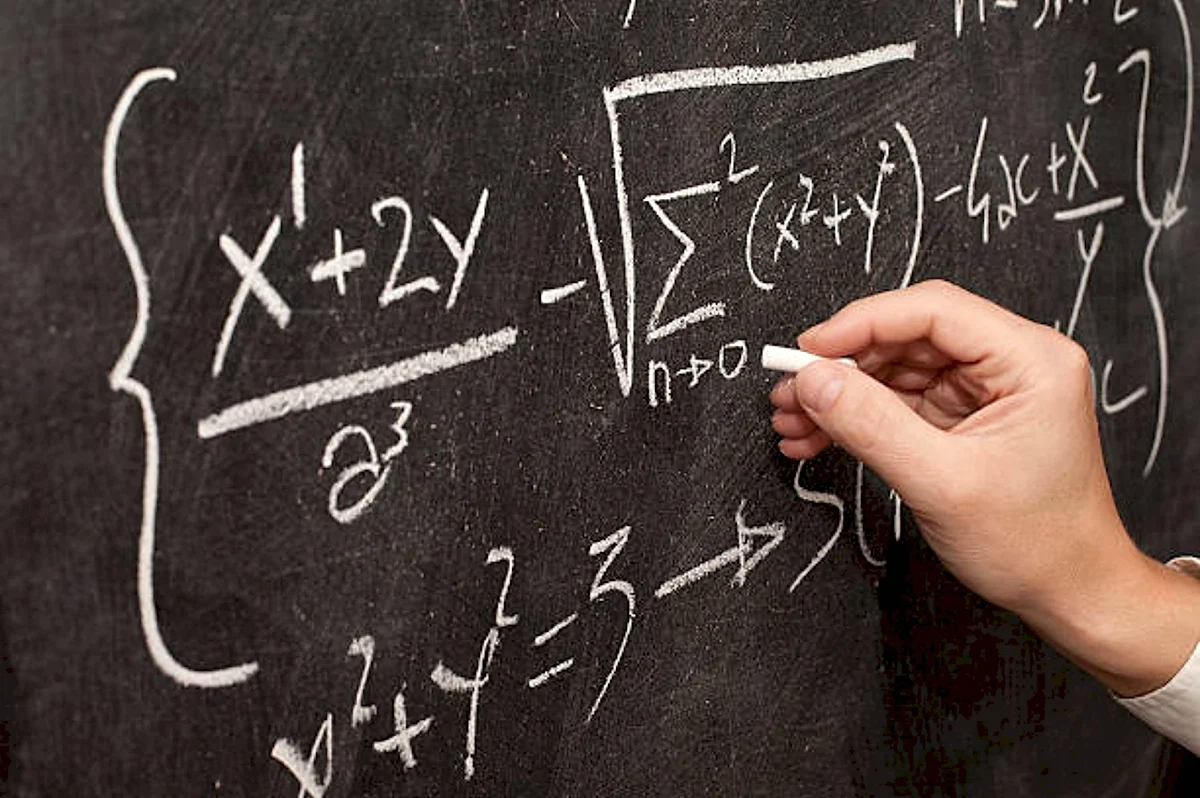 { (x¹+2y)/a³ - √(∑²ₙ→₀ (x²+y²)) -4ac + x²/y }
x²+y²=3 →